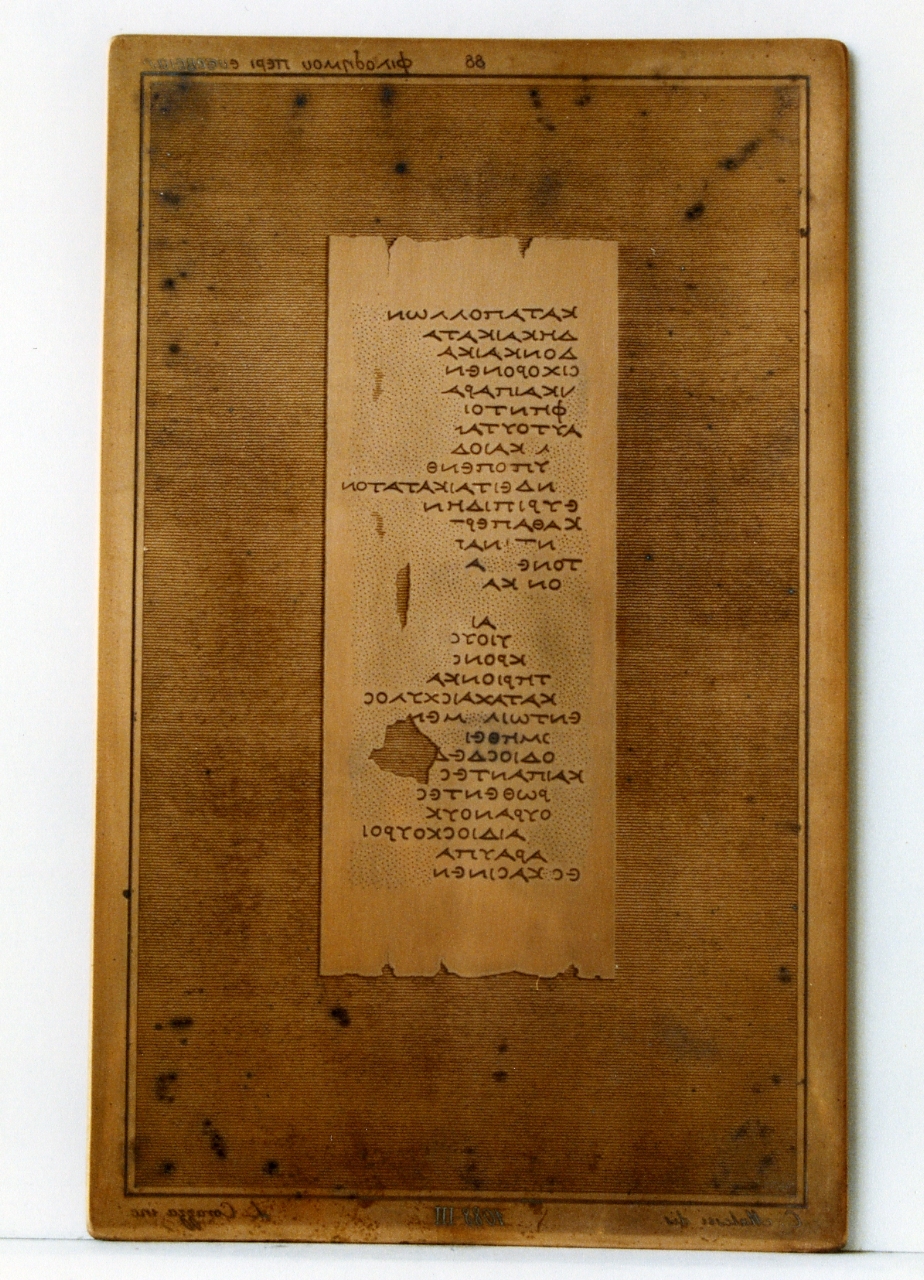 88 φιλοδημου περι
ΚΑΤΑΠΟΛΛΩΝ
ΔΗΚΑΙΚΑΤΑ
ΔΟΝΚΑΙΚΑ
ϹΙΧΟΡΟΝΕΝ
ΝΚΑΙΠΑΡΑ
ΦΗΝΤΟΙ
ΑΥΤΟΥΤΑΝ
ΚΑΙΟΔ
ΥΠΟΠΕΝΘ
ΝΔΕΙΤΑΙΚΑΤΑΤΟΝ
ΕΥΡΙΠΙΔΗΝ
ΚΑΘΑΠΕΡΓ
ΤΟΝΕ Α
ΟΝ ΚΑ
ΑΙ
ΥΙΟΥϹ
ΚΡΟΝϹ
ΤΗΡΙΟΝΚΑ
ΚΑΤΑΧΑΙϹΧΥΛΟϹ
ΕΝΤΩΙΛ ΜΕΝ
ΟΔΙΟϹΔΕΔ
ΚΑΙΠΑΝΤΕϹ
ΡΩΘΕΝΤΕϹ
ΟΥΡΑΝΟΥΚ
ΑΙΔΙΟϹΚΟΥΡΟΙ
ΑΡΑΥΠΑ
ΕϹ ΚΑϹΙΝΕΝ
Corazza inc